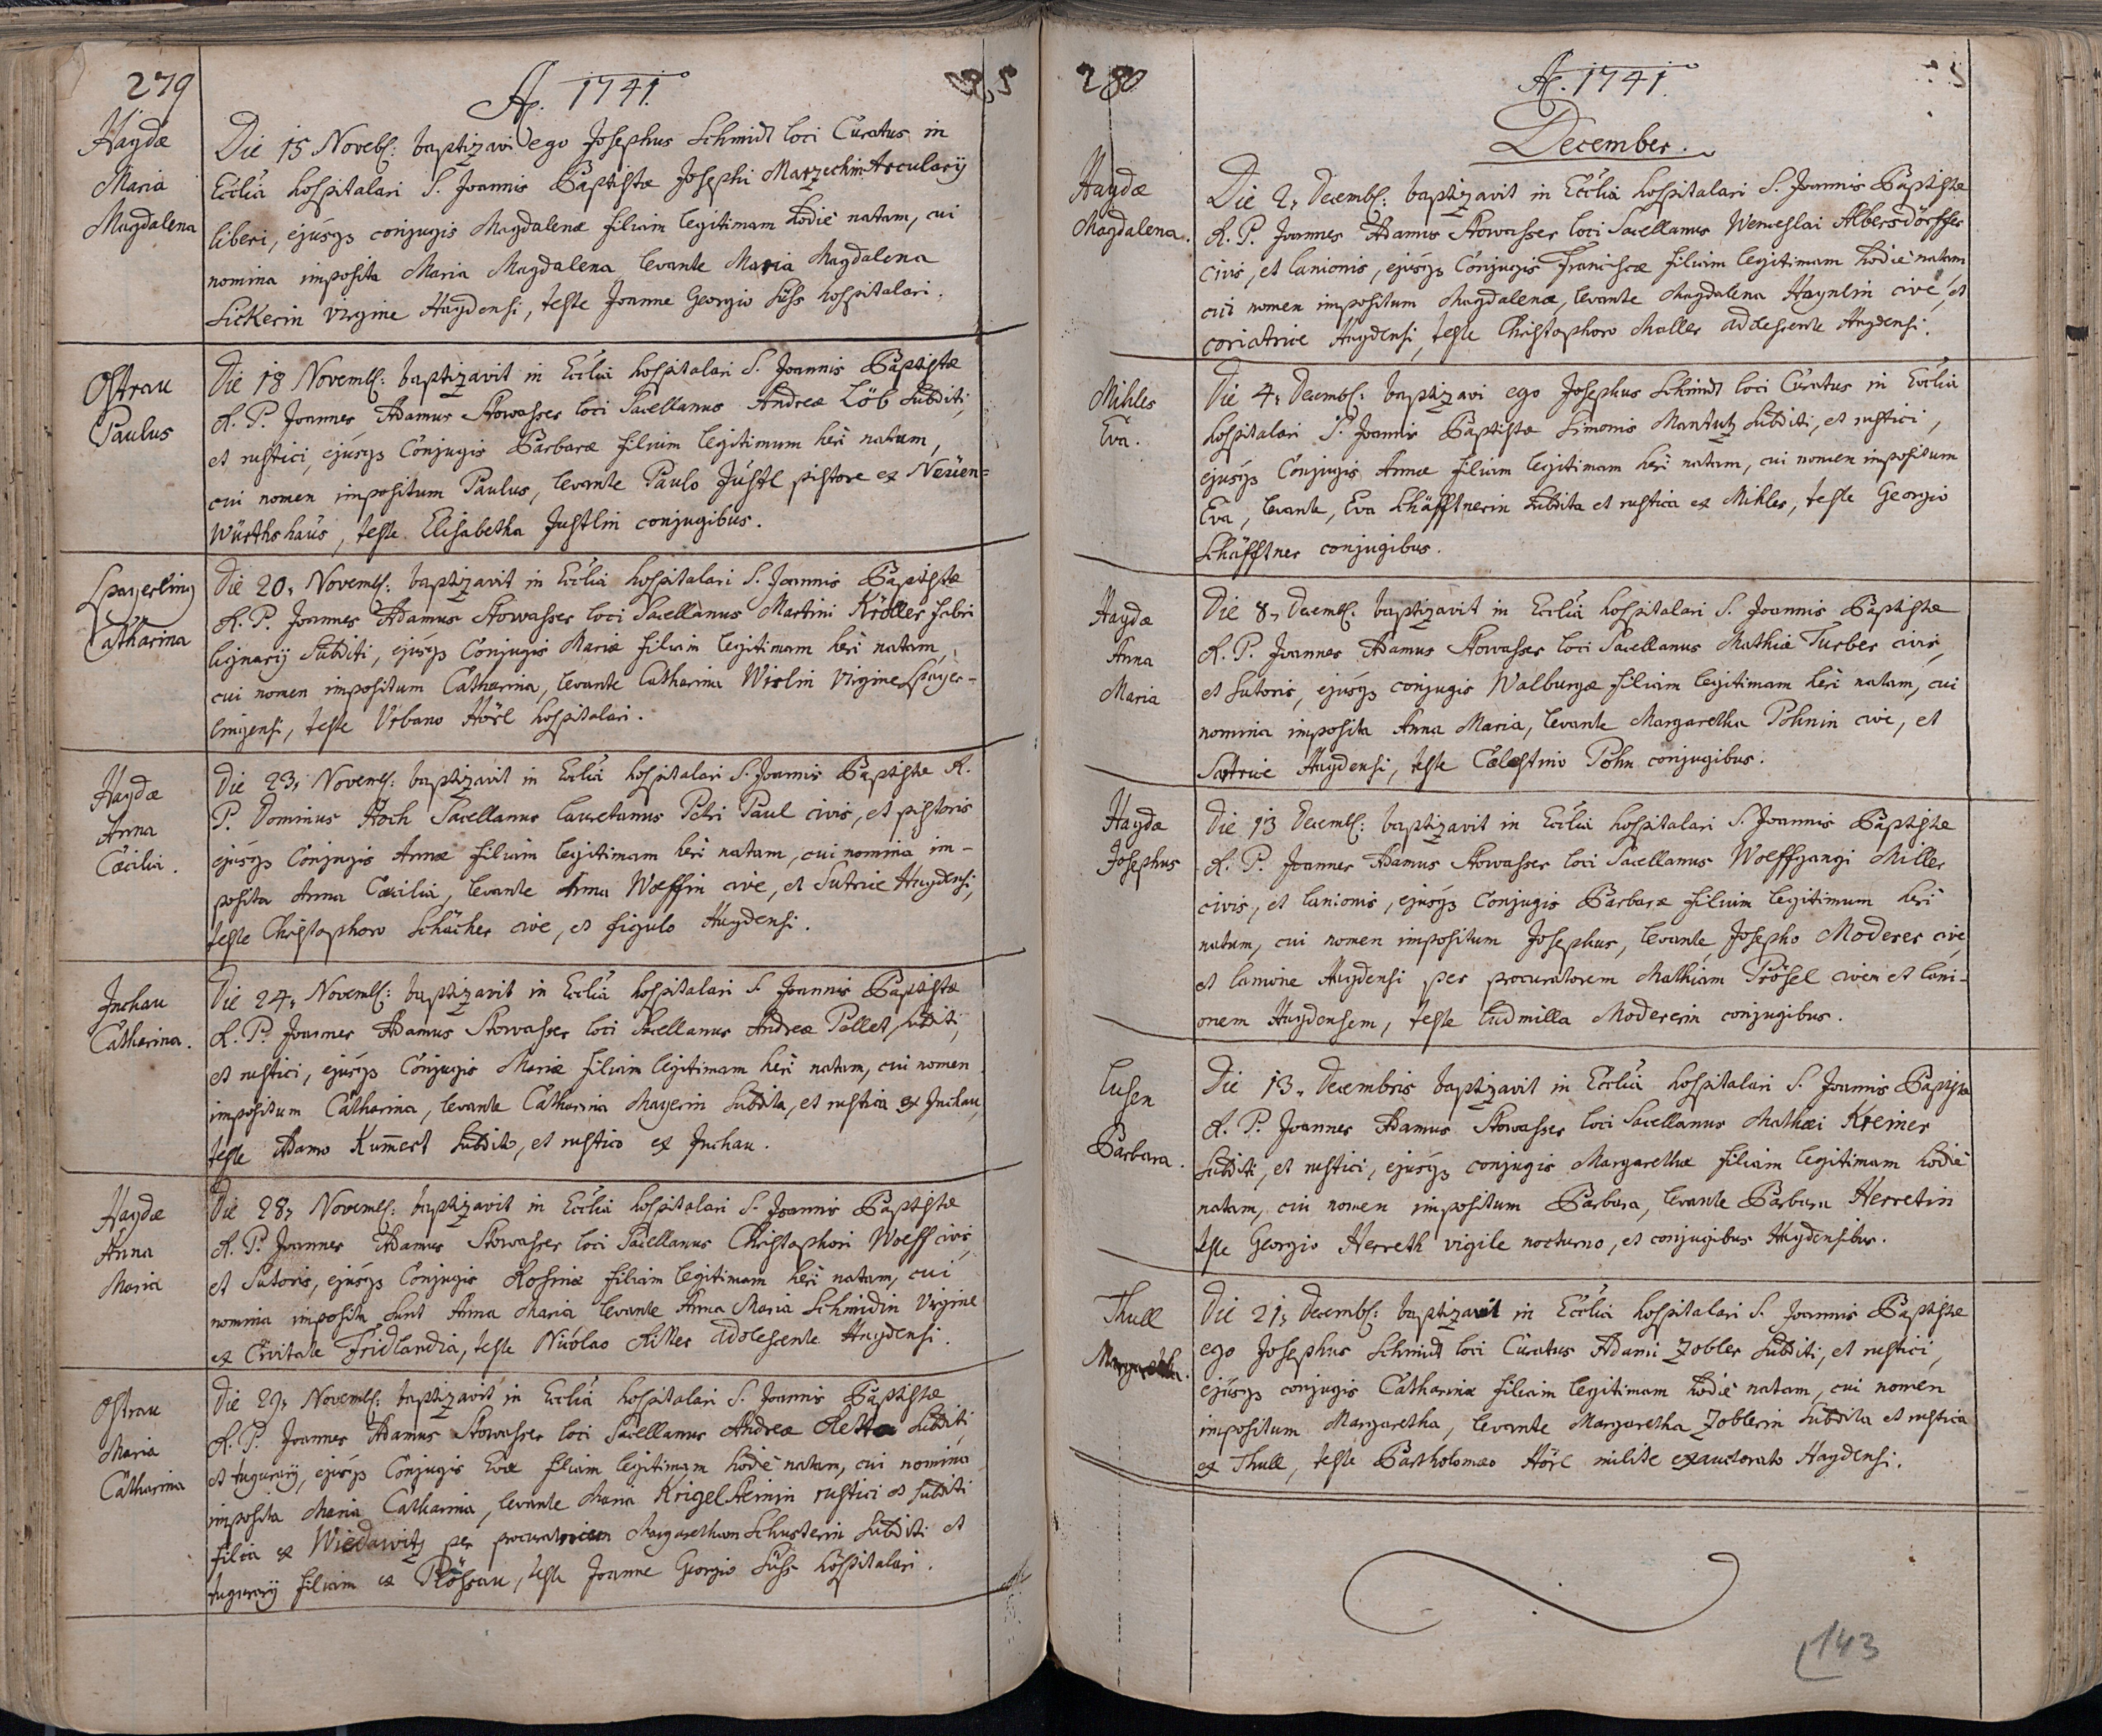 279
A̅o. 1741.
Haydæ
Maria
Magdalena
Die 15 Novebʃ: baptizavi ego Josephus Schmidt loci Curatus in
Ecclia hospitalari S. Joannis Baptistæ Josephi Marzechin Arcularij
liberi, ejúsqz conjugis Magdalenæ filiam legitimam hodiè natam, cui
nomina imposita Maria Magdalena levante Maria Magdalena
Sickerin virgine Haydensi, teste Joanne Georgio Süss hospitalari.
Ostrau
Paulus
Die 18 Novembʃ: baptizavit in Ecclia hospitalari S. Joannis Baptistæ
R. P. Joannes Adamus Stowasser loci Sacellanus Andreæ Löb subditi,
et rustici, ejúsqz Conjugis Barbaræ filium legitimum heri natum,
cui nomen impositum Paulus, levante Paulo Jústl pistore ex Neüen=
Würthshaüs, teste Elisabetha Justlin conjugibus.
Spayerling
Catharina
Die 20, Novembʃ: baptizavit in Ecclia hospitalari S. Joannis Baptistæ
R. P. Joannes Adamus Stowasser loci Sacellanus Martini Kröller fabri
lignarij Subditi, ejúsqz Conjugis Mariæ filiam legitimam heri natam,
cui nomen impositum Catharina, levante Catharina Wislin virgine Spayer-
lingensi, teste Urbano Hörl hospitalari.
Haydæ
Anna
Cæcilia.
Die 23, Novembʃ: baptizavit in Ecclia hospitalari S. Joannis Baptistæ R.
P. Dominus Koch Sacellanus lauretanus Petri Paul civis, et pistoris
ejúsqz Conjugis Annæ filiam legitimam heri natam, cui nomina im-
posita Anna Cæcilia, levante Anna Wolffin cive, et Sutrice Haydensi,
teste Christophoro Schächer cive, et figulo Haydensi.
Juchau
Catharina.
Die 24, Novembʃ: baptizavit in Ecclia hospitalari S. Joannis Baptistæ
R. P. Joannes Adamus Stowasser loci Sacellanus Andreæ Pallet, subditi,
et rustici, ejúsqz Conjugis Mariæ filiam legitimam heri natam, cui nomen
impositum Catharina, levante Catharina Mayerin subdita, et rustica ex Juchau,
teste Adamo Kum̅ert subdito, et rustico ex Juchau.
Haydæ
Anna
Maria
Die 28, Novembʃ: baptizavit in Ecclia hospitalari S. Joannis Baptistæ
R. P. Joannes Adamus Stowasser loci Sacellanus Christophori Wolff civis,
et Sutoris, ejúsqz Conjugis Rosinæ filiam legitimam heri natam, cui
nomina imposita sunt Anna Maria levante Anna Maria Schmidin Virgine
ex Civitate Fridlandia, teste Nicolao Ritter adolescente Haydensi.
Ostrau
Maria
Catharina
Die 29, Novembʃ: baptizavit in Ecclia hospitalari S. Joannis Baptistæ
R. P. Joannes Adamus Stowasser loci Sacellanus Andreæ subditi,
et tugurarij, ejúsqz Conjugis Evæ filiam legitimam hodiè natam, cui nomina
imposita Maria Catharina, levante Maria Krigelsteinin rustici et subditi
filia ex Wiedawitz per procuratricem Margaretham Schusterin subditi et
tugurarij filiam ex Plössau, teste Joanne Georgio Süss hospitalari.
280
A̅o. 1741.
December.
Haydæ
Magdalena.
Die 2, Decembʃ: baptizavit in Ecclia hospitalari S. Joannis Baptistæ
R. P. Joannes Adamus Stowasser loci Sacellanus Wenceslai Albersdörffer
civis, et lanionis, ejúsqz Conjugis Franciscæ filiam legitimam hodiè natam
cui nomen impositum Magdalenæ, levante Magdalena Haynlin cive, et
coriatrice Haydensi, teste Christophoro Maller adolescente Haydensi.
Mihles
Eva.
Die 4, Decembʃ: baptizavi ego Josephus Schmidt loci Curatus in Ecclia
hospitalari S. Joannis Baptistæ Simonis Mantutz subditi, et rustici,
ejúsqz Conjugis Annæ filiam legitimam heri natam, cui nomen impositum
Eva, levante, Eva Schäfftnerin subdita et rustica ex Mihles, teste Georgio
Schäfftner conjugibus.
Haydæ
Anna
Maria
Die 8, Decembʃ: baptizavit in Ecclia hospitalari S. Joannis Baptistæ
R. P. Joannes Adamus Stowasser loci Sacellanus Mathiæ Turber civis,
et sutoris, ejúsqz conjugis Walburgæ filiam legitimam heri natam, cui
nomina imposita Anna Maria, levante Margaretha Pohnin cive, et
Sartrice Haydensi, teste Cælestino Pohn conjugibus.
Haydæ
Josephus
Die 13 Decembʃ: baptizavit in Ecclia hospitalari S. Joannis Baptistæ
R. P. Joannes Adamus Stowasser loci Sacellanus Wolffgangi Miller
civis, et lanionis, ejúsqz Conjugis Barbaræ filium legitimum heri
natum, cui nomen impositum Josephus, levante Josepho Moderer cive,
et lanione Haydensi per procuratorem Mathiam Prösel civem et lani-
onem Haydensem, teste Ludmilla Modererin conjugibus.
Lusen
Barbara.
Die 13, Decembris baptizavit in Ecclia hospitalari S. Joannis Baptistæ
R. P. Joannes Adamus Stowasser loci Sacellanus Mathæi Kreiner
subditi, et rustici, ejúsqz conjugis Margarethæ filiam legitimam hodiè
natam, cui nomen impositum Barbara, levante Barbara Herretin
teste Georgio Herreth vigile nocturno, et conjugibus Haydensibus.
Thull
Margaretha.
Die 21, Decembʃ: baptizavit in Ecclia hospitalari S. Joannis Baptistæ
ego Josephus Schmidt loci Curatus Adami Zobler subditi, et rustici,
ejúsqz conjugis Catharinæ filiam legitimam hodiè natam, cui nomen
impositum Margaretha, levante Margaretha Zoblerin subdita et rustica
ex Thull, teste Bartholomæo Hörl milite exauctorato Haydensi.
143